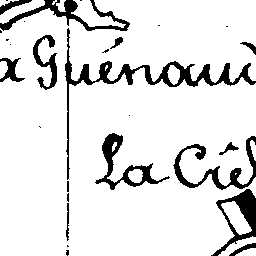 a Guénaud
La Ciel